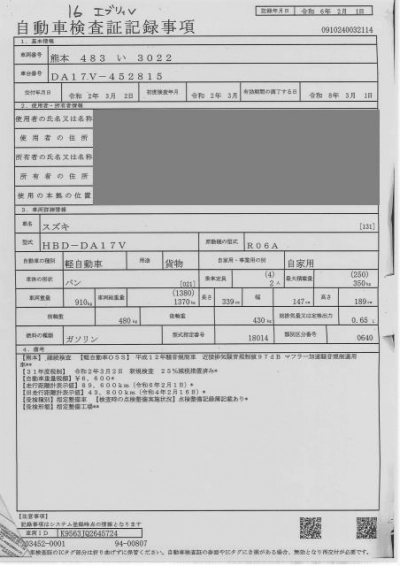 16 エブリィV
自動車検査証記録事項
記録年月日 令和 6年 2月 1日
0910240032114
1. 基本情報
車両番号 熊本 483 い 3022
車台番号 DA17V-452815
交付年月日 令和 2年 3月 2日 初度検査年月 令和 2年 3月 有効期間の満了する日 令和 8年 3月 1日
2. 使用者・所有者情報
使用者の氏名又は名称
使用者の住所
所有者の氏名又は名称
所有者の住所
使用の本拠の位置
3. 車両詳細情報
車名 スズキ [131]
型式 HBD-DA17V 原動機の型式 R06A
自動車の種別 軽自動車 用途 貨物 自家用・事業用の別 自家用
車体の形状 バン [021] 乗車定員 (4) 2人 最大積載量 (250) 350kg
車両重量 910kg 車両総重量 (1380) 1370kg 長さ 339cm 幅 147cm 高さ 189cm
前軸重 480kg 後軸重 430kg 総排気量又は定格出力 0.65L
燃料の種類 ガソリン 型式指定番号 18014 類別区分番号 0640
4. 備考
【熊本】,継続検査 【軽自動車055】 平成12年騒音規制車 近接排気騒音規制値97dB マフラー加速騒音規制適用
車**
【31年度税制】 令和2年3月2日 新規検査 25%減税措置済み*
【自動車重量税額】¥6,600*
【走行距離計表示値】89,600km(令和6年2月1日)*
【旧走行距離計表示値】43,800km(令和4年2月16日)*
【受検種別】指定整備車 【検査時の点検整備実施状況】点検整備記録簿記載あり*
【受検形態】指定整備工場**
【注意事項】
記録事項はシステム登録時点の情報となります
車両ID E9563JQ2645724
203452-0001 94-00807